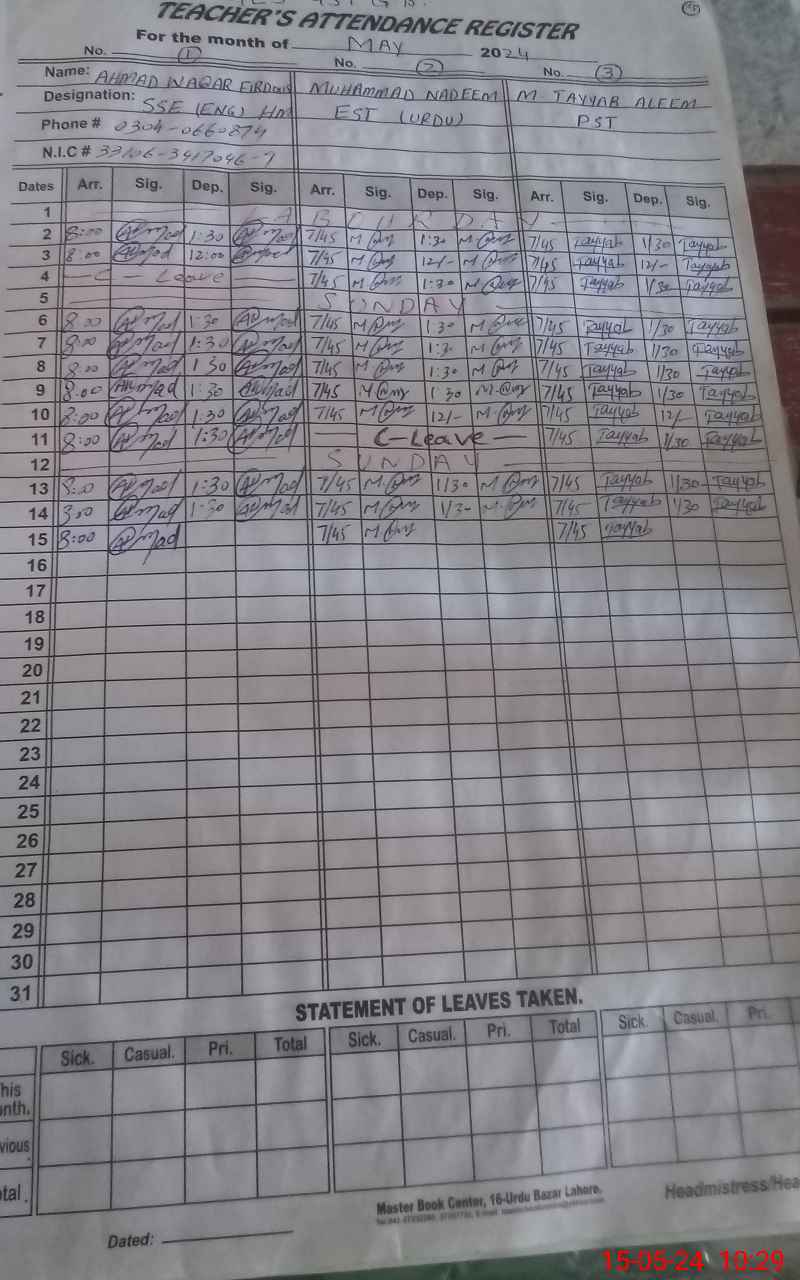 TEACHER'S ATTENDANCE REGISTER
For the month of MAY 2024
No. 1 No. 2 No. 3
Name: AHMAD WAQAR FIRDOUS MUHAMMAD NADEEM M TAYYAB ALEEM
Designation: SSE (ENG) HM EST (URDU) PST
Phone # 0304-0660874
N.I.C # 33106-3417046-7
Dates Arr. Sig. Dep. Sig. Arr. Sig. Dep. Sig. Arr. Sig. Dep. Sig.
1 LABOUR DAY
2 8:00 Ahmad 1:30 Ahmad 7/45 1:30 7/45 Tayyab 1/30 Tayyab
3 8:00 Ahmad 12:00 Ahmad 7/45 12/- 7/45 Tayyab 12/- Tayyab
4 — C - Leave 7/45 1:30 7/45 Tayyab 1/30 Tayyab
5 SUNDAY
6 8:00 Ahmad 1:30 Ahmad 7/45 1:30 7/45 Tayyab 1/30 Tayyab
7 8:00 Ahmad 1:30 Ahmad 7/45 1:30 7/45 Tayyab 1/30 Tayyab
8 8:00 Ahmad 1:30 Ahmad 7/45 1:30 7/45 Tayyab 1/30 Tayyab
9 8:00 Ahmad 1:30 Ahmad 7/45 1:30 7/45 Tayyab 1/30 Tayyab
10 8:00 Ahmad 1:30 Ahmad 7/45 12/- 7/45 Tayyab 12/- Tayyab
11 8:00 Ahmad 1:30 Ahmad — C-Leave — 7/45 Tayyab 1/30 Tayyab
12 SUNDAY
13 8:00 Ahmad 1:30 Ahmad 7/45 1/30 7/45 Tayyab 1/30 Tayyab
14 8:00 Ahmad 1:30 Ahmad 7/45 1/30 7/45 Tayyab 1/30 Tayyab
15 8:00 Ahmad 7/45 7/45 Tayyab
16
17
18
19
20
21
22
23
24
25
26
27
28
29
30
31
STATEMENT OF LEAVES TAKEN.
Sick. Casual. Pri. Total Sick. Casual. Pri. Total Sick. Casual. Pri.
his
nth.
vious
tal.
Master Book Center, 16-Urdu Bazar Lahore.
Headmistress/Hea
Dated:
15-05-24 10:29